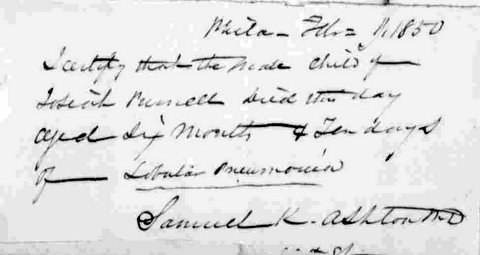 Phila - Feb = 1, 1850
I certify that the Male Child of
Josiah Bunell Died this day
aged Six Months & Ten days
of Lobular Pneumonia
Samuel K. Ashton M.D